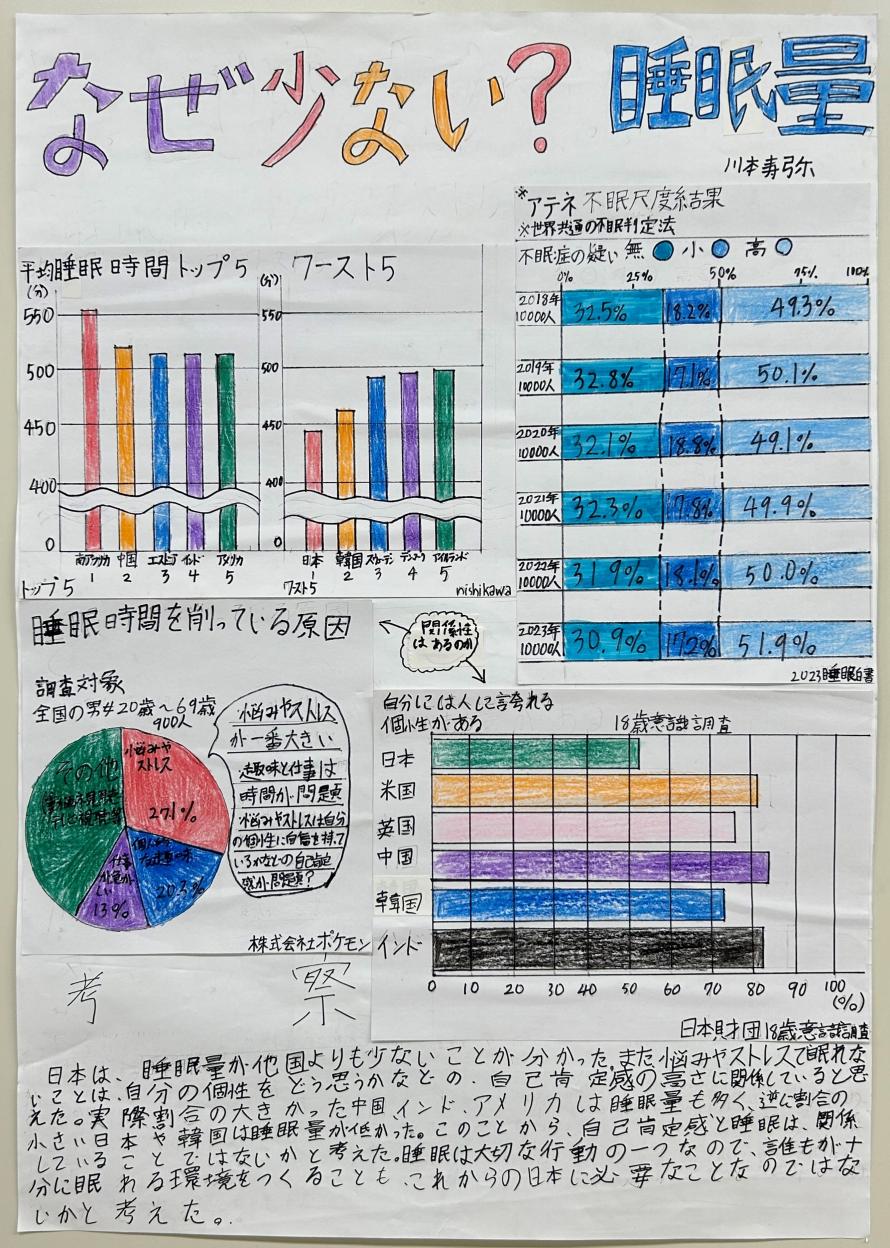 なぜ少ない？ 睡眠量
川本寿弥
平均睡眠時間トップ5 ワースト5
(分)
550
500
450
400
0
南アフリカ 中国 エストニア インド アメリカ
1 2 3 4 5
トップ5
(分)
550
500
450
400
0
日本 韓国 スウェーデン デンマーク アイルランド
1 2 3 4 5
ワースト5
nishikawa
※アテネ不眠尺度結果
※世界共通の不眠判定法
不眠症の疑い 無 小 高
0% 25% 50% 75% 100%
2018年 10000人 32.5% 18.2% 49.3%
2019年 10000人 32.8% 17.1% 50.1%
2020年 10000人 32.1% 18.8% 49.1%
2021年 10000人 32.3% 17.8% 49.9%
2022年 10000人 31.9% 18.1% 50.0%
2023年 10000人 30.9% 17.2% 51.9%
2023睡眠白書
睡眠時間を削っている原因
調査対象
全国の男女20歳〜69歳
900人
悩みや
ストレス
27.1%
個人的
な趣味
20.3%
仕事
が忙
しい
13%
その他
悩みやストレス
が一番大きい
趣味と仕事は
時間が問題
悩みやストレスは自分
の個性に自信を持って
いるかなどの自己肯定
感が問題？
株式会社ポケモン
関係性
はあるのか
自分には人に誇れる
個性がある
18歳意識調査
日本
米国
英国
中国
韓国
インド
0 10 20 30 40 50 60 70 80 90 100
(%)
日本財団18歳意識調査
考察
日本は、睡眠量が他国よりも少ないことが分かった。また悩みやストレスで眠れな
いことは、自分の個性をどう思うかなどの、自己肯定感の高さに関係していると思
えた。実際割合の大きかった中国、インド、アメリカは睡眠量も多く、逆に割合の
小さい日本や韓国は睡眠量が低かった。このことから、自己肯定感と睡眠は、関係
していることではないかと考えた。睡眠は大切な行動の一つなので、誰もが十
分に眠れる環境をつくることも、これからの日本に必要なことなのではな
いかと考えた。